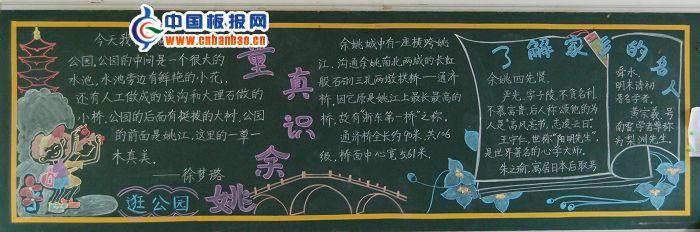 中国板报网
www.cnbanbao.cn
今天我
公园,公园的中间是一个很大的
水池,水池旁边有鲜艳的小花,
还有人工做成的溪沟和大理石做的
小桥,公园的后面有挺拔的大树,公园
的前面是姚江,这里的一草一
木真美。
——徐梦璐
逛公园
童真识余姚
余姚城中有一座横跨姚
江、沟通余姚南北两城的长虹
般石的三孔两墩拱桥——通济
桥,因它原是姚江上最长最高的
桥,故有浙东第一桥之称。
通济桥全长约90米,共106
级,桥面中心宽5.61米。
了解家乡的名人
余姚四先贤。
严光,字子陵,不贪名利,
不慕富贵,后人称颂他的为
人是"高风亮节,志凌之日"。
王守仁,世称"阳明先生",
是世界著名的心学大师。
朱之瑜,寓居日本后取号
舜水,
明末清初
著名学者。
黄宗羲,号
南雷,学者尊称
为梨洲先生。